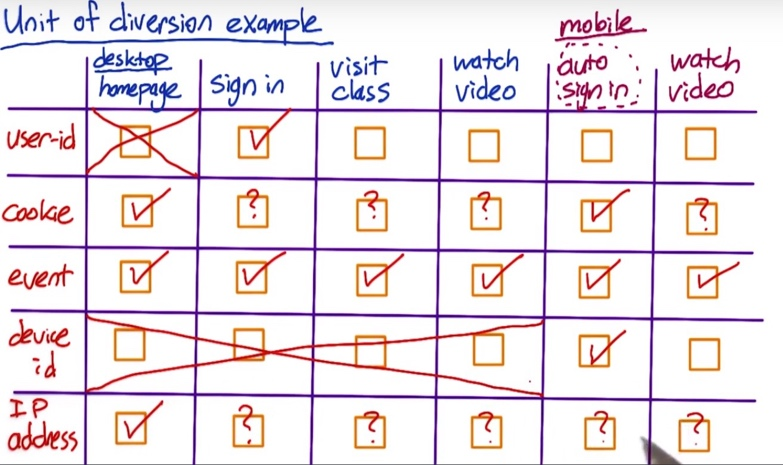 Unit of diversion example
mobile
desktop homepage
sign in
visit class
watch video
auto sign in
watch video
user-id
cookie
? ? ? ?
event
device id
IP address
? ? ? ? ?